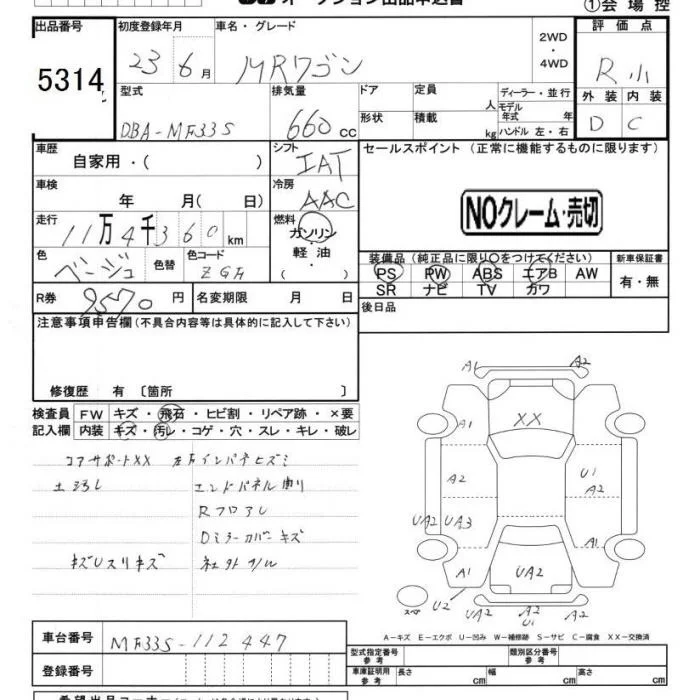 ①会場控
出品番号 初度登録年月 車名・グレード 評価点
5314 23 6月 MRワゴン 2WD・4WD R小
型式 排気量 ドア 定員 人 ディーラー・並行 外装 内装
DBA-MF33S 660cc 形状 積載 kg モデル年式 年 ハンドル 左・右 D C
車歴 自家用・( ) シフト IAT セールスポイント (正常に機能するものに限ります)
車検 年 月(日) 冷房 AAC
NOクレーム・売切
走行 11万4千360km 燃料 ガソリン・軽油・( )
色 ベージュ 色替 色コード ZGA
装備品(純正品に限り○をつけてください) 新車保証書
PS PW ABS エアB AW 有・無
SR ナビ TV カワ
R券 9570円 名変期限 月 日 後日品
注意事項申告欄(不具合内容等は具体的に記入して下さい)
修復歴 有 〔箇所 〕
検査員 FW キズ・飛石・ヒビ割・リペア跡・×要
記入欄 内装 キズ・汚レ・コゲ・穴・スレ・キレ・破レ
コアサポートXX 左右インパネヒズミ
エンドパネル曲リ
Rフロアし
Dミラーカバーキズ
キズUスリキズ 社外アルミ
A1 A2
XX
A1
A2 U1
A2
UA2 UA3
A1
A1 UA2
スペア U2 UA2 A2 UA2
U1
A-キズ E-エクボ U-凹み W-補修跡 S-サビ C-腐食 XX-交換済
車台番号 MF33S-112447
登録番号
型式指定番号 参考 類別区分番号 参考
車庫証明用 参考 長さ cm 幅 cm 高さ cm